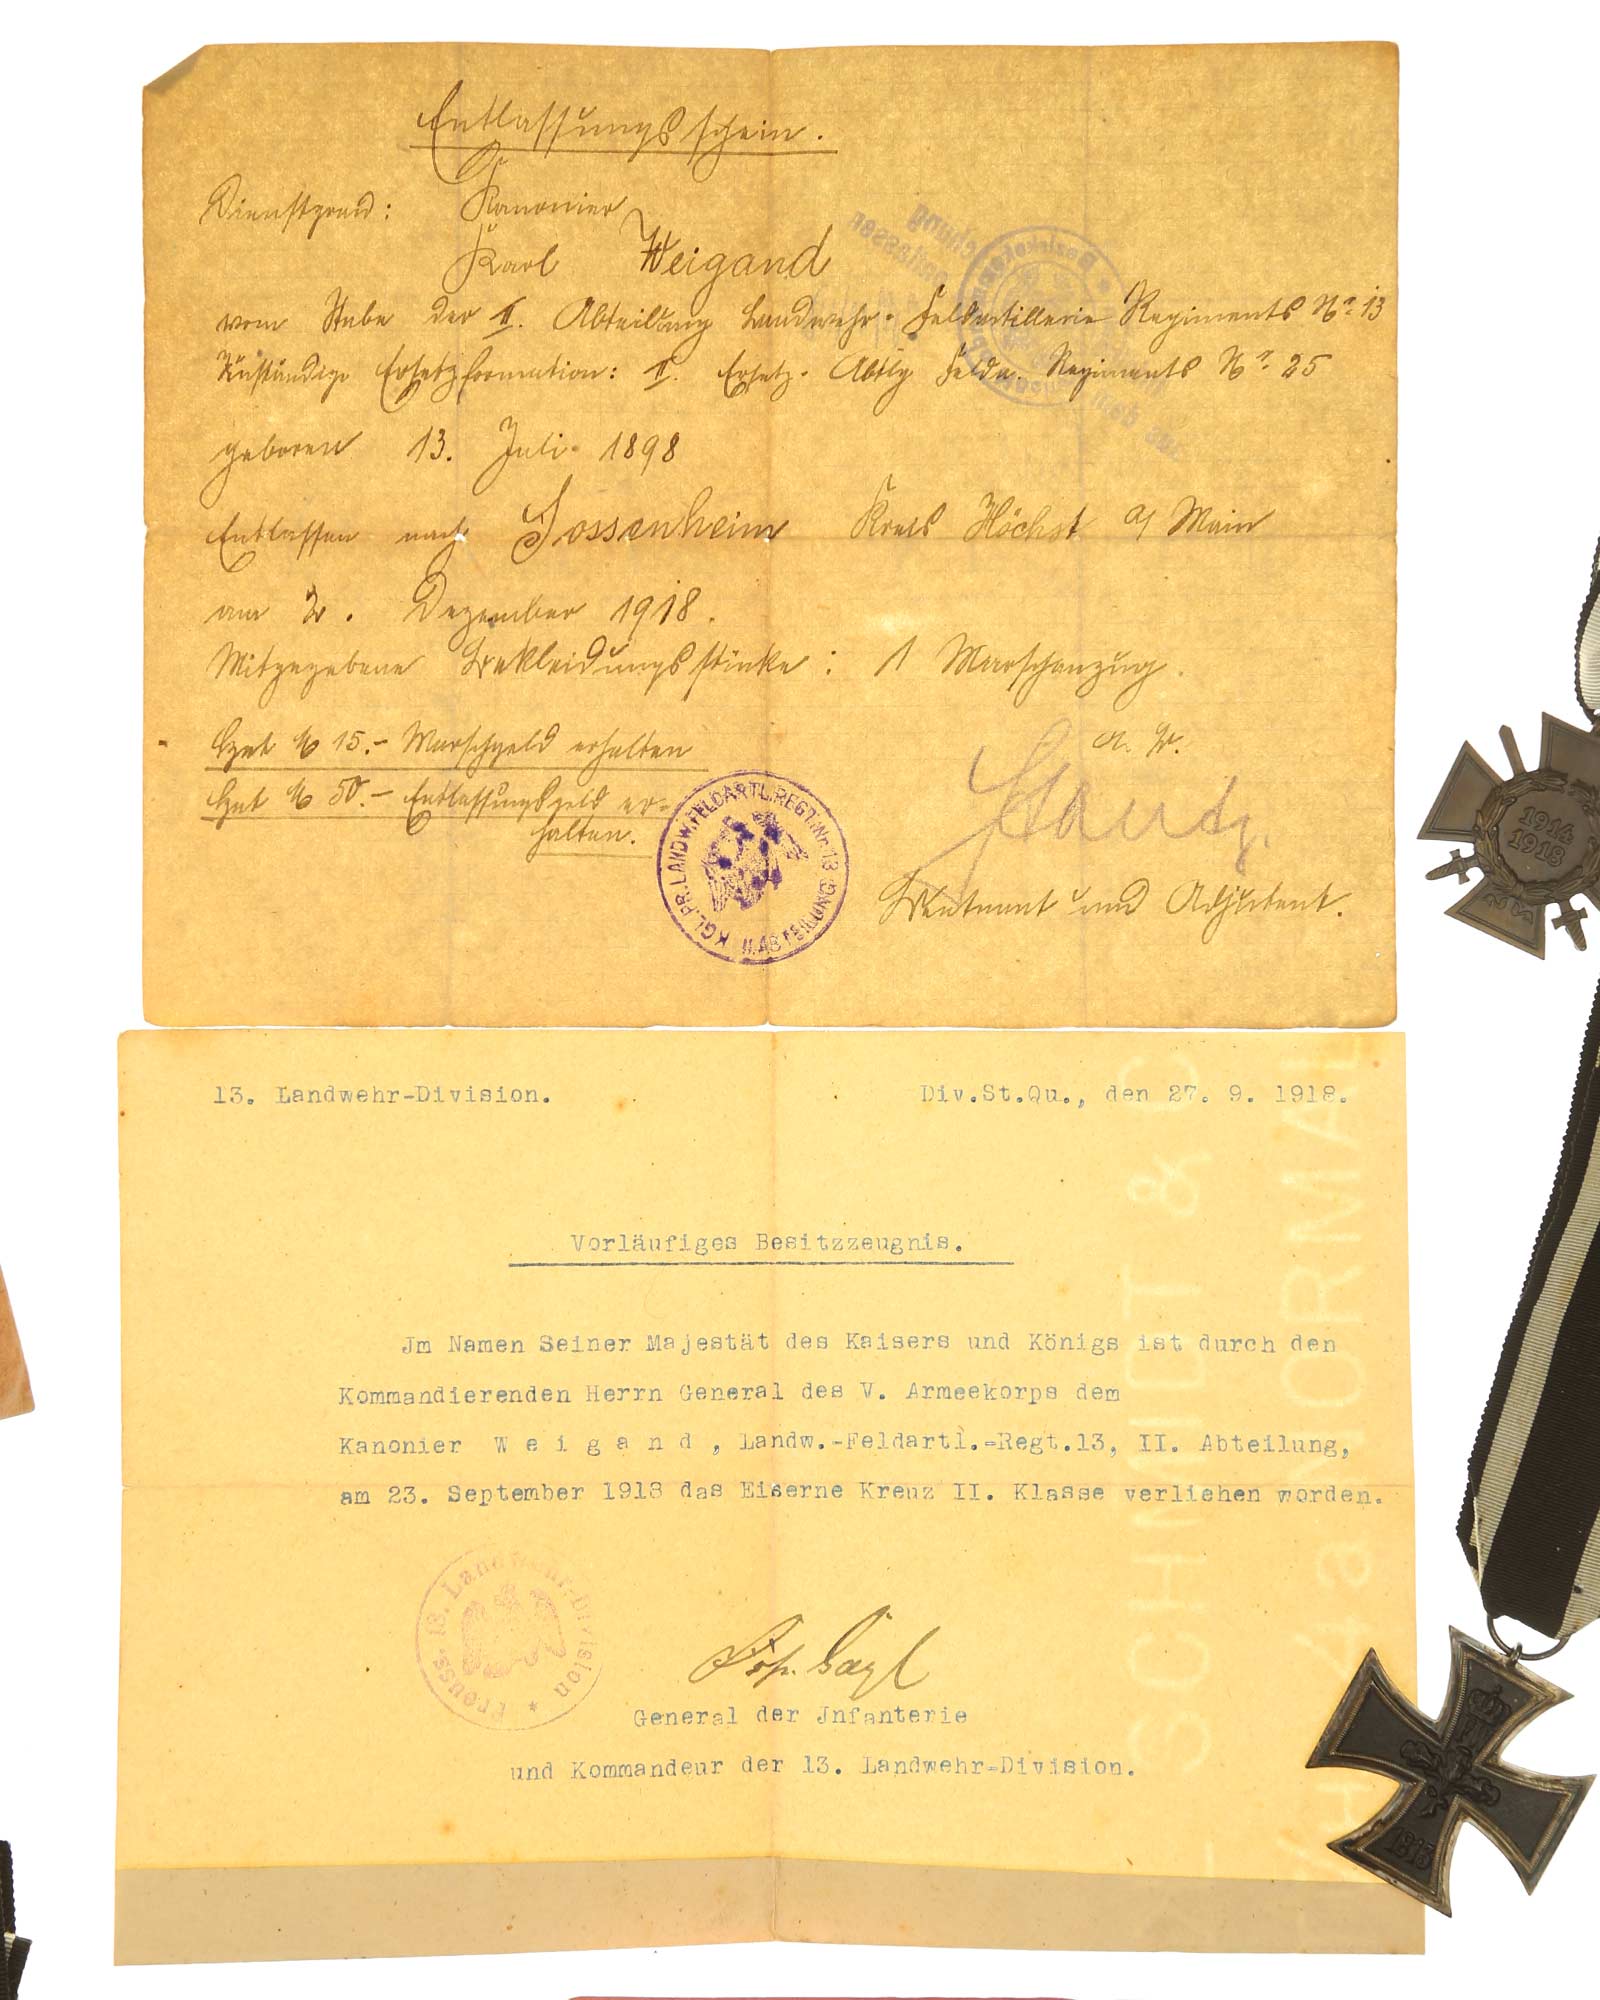 Entlassungsschein.
Dienstgrad: Kanonier
Karl Weigand
vom Stabe der II. Abteilung Landwehr-Feldartillerie Regiments No 13
Zuständige Ersatzformation: II. Ersatz-Abtlg Felda. Regiments Nr 25
geboren 13. Juli 1898
Entlassen nach Sossenheim Kreis Höchst a/ Main
am 2. Dezember 1918.
Mitgegebene Bekleidungsstücke: 1 Marschanzug.
Hat M 15.- Marschgeld erhalten
Hat M 50.- Entlassungsgeld er-
halten.
Leutnant und Adjutant.
KGL.PR.LANDW.FELDARTL.REGT.Nr.13 II.ABTEILUNG
13. Landwehr-Division.
Div.St.Qu., den 27. 9. 1918.
Vorläufiges Besitzzeugnis.
Jm Namen Seiner Majestät des Kaisers und Königs ist durch den
Kommandierenden Herrn General des V. Armeekorps dem
Kanonier W e i g a n d , Landw.-Feldartl.-Regt.13, II. Abteilung,
am 23. September 1918 das Eiserne Kreuz II. Klasse verliehen worden.
Preuss. 13. Landwehr-Division *
General der Jnfanterie
und Kommandeur der 13. Landwehr-Division.
SCHMIDT & C
4a NORMAL
1914
1918